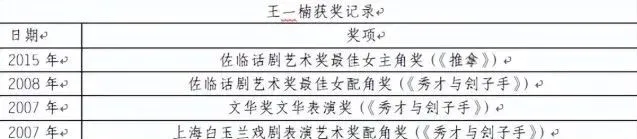 王一楠获奖记录
日期 奖项
2015 年 佐临话剧艺术奖最佳女主角奖（《推拿》）
2008 年 佐临话剧艺术奖最佳女配角奖（《秀才与刽子手》）
2007 年 文华奖文华表演奖（《秀才与刽子手》）
2007 年 上海白玉兰戏剧表演艺术奖配角奖（《秀才与刽子手》）